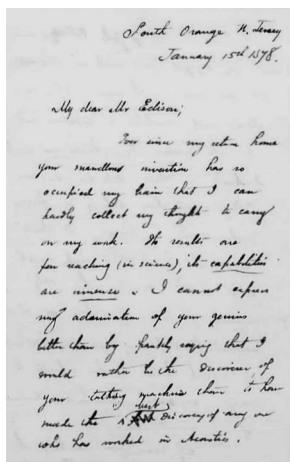 South Orange N. Jersey
January 15th 1878.
My dear Mr Edison;
Ever since my return home
your marvellous invention has so
occupied my brain that I can
hardly collect my thoughts to carry
on my work. Its results are
far reaching (in science), its capabilities
are immense. I cannot express
my admiration of your genius
better than by frankly saying that I
would rather be the discoverer of
your talking machine than to have
made the best discovery of any one
who has worked in Acoustics.